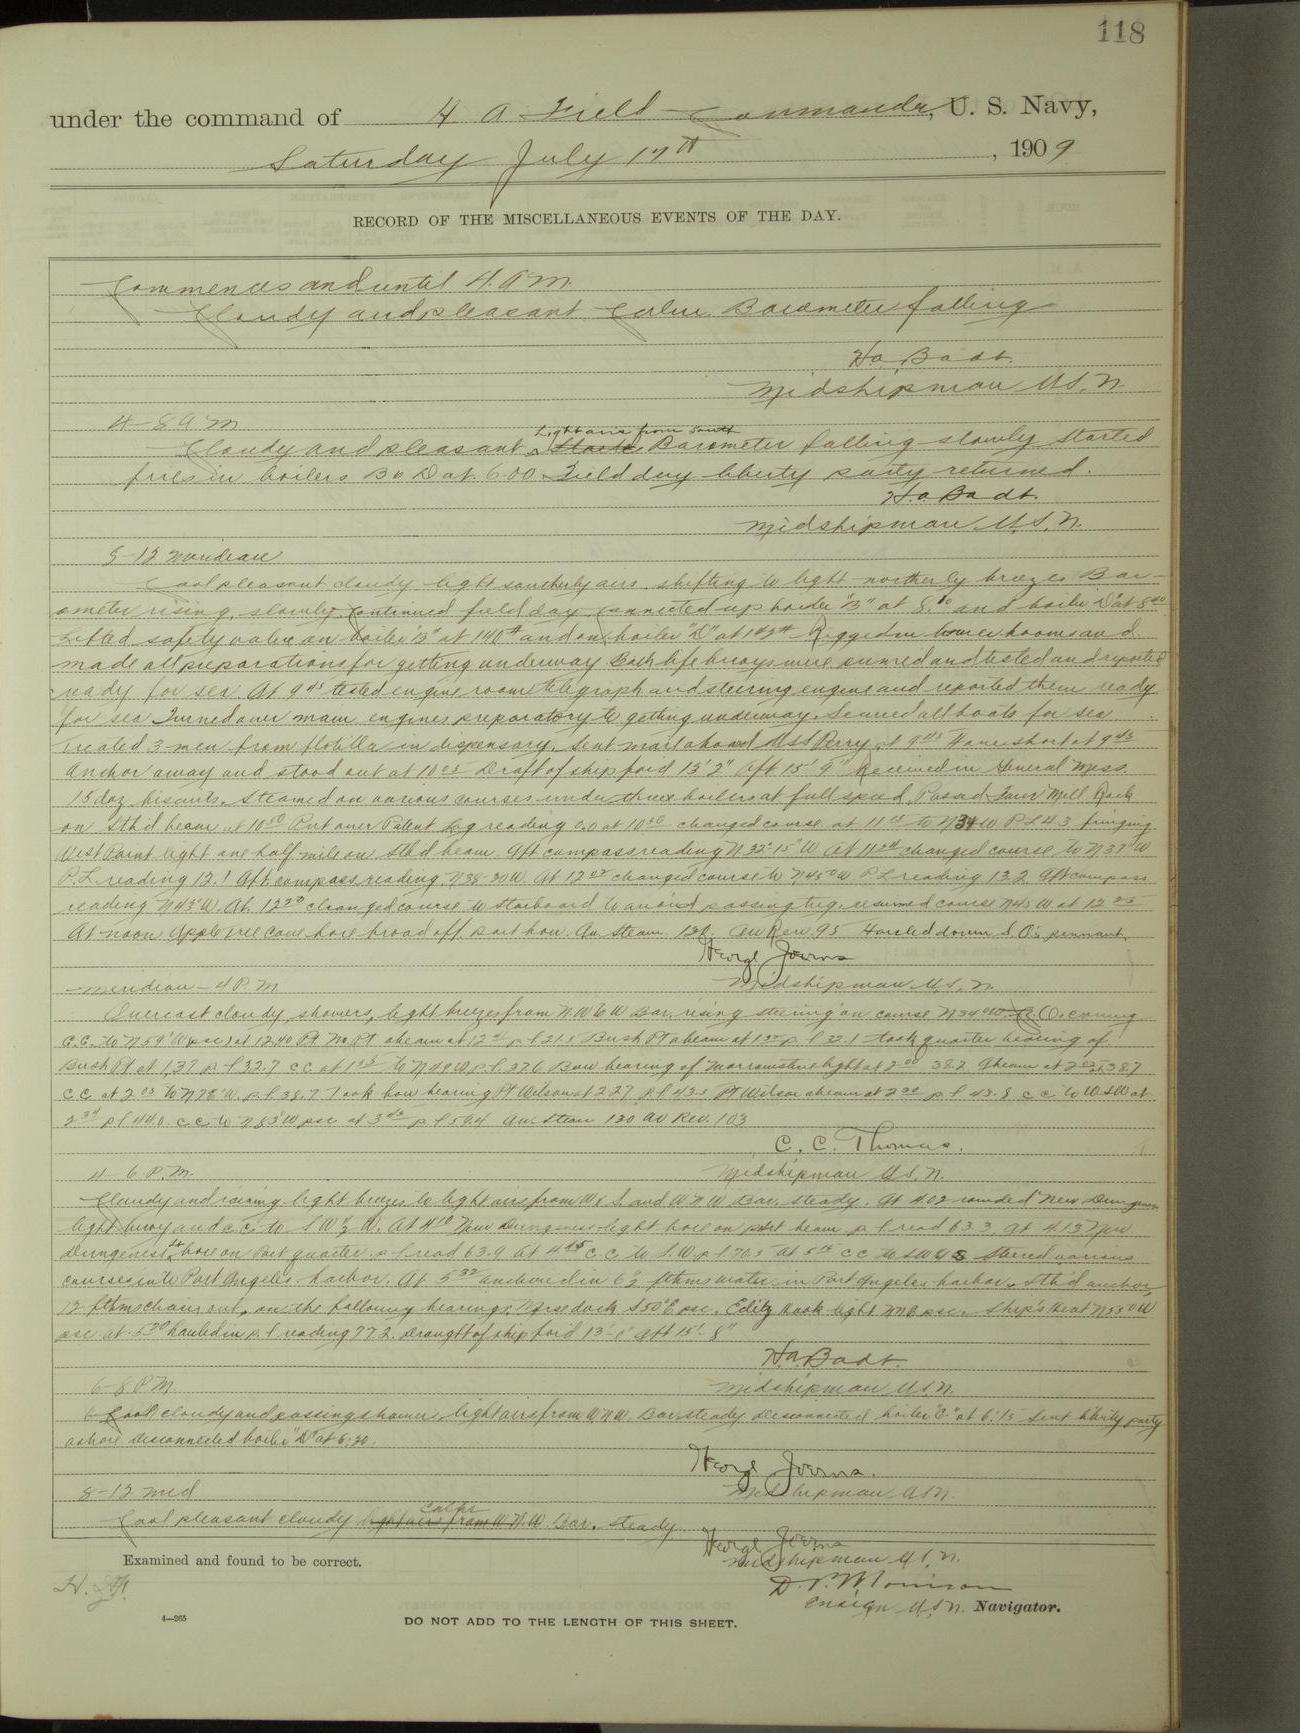 118
under the command of H A Field Commander, U. S. Navy,
Saturday July 17th, 1909
RECORD OF THE MISCELLANEOUS EVENTS OF THE DAY.
Commences and until 4. A M.
Cloudy and pleasant Calm. Barometer falling
H. a. Badt.
Midshipman U.S.N.
4-8 A M
Light airs from South
Cloudy and pleasant Barometer falling slowly Started
fires in boilers B & D at 6:00 Field day liberty party returned.
H. a. Badt.
Midshipman U.S.N.
8-12 meridian
Cool pleasant cloudy light southerly airs shifting to light northerly breezes Bar-
ometer rising slowly Continued field day Connected up boiler "B" at 8.10 and boiler "D" at 8 40
Lifted safety valve on boiler "B" at 140# and on boiler "D" at 142# Rigged in lower booms and
made all preparations for getting underway Both life buoys were primed and tested and reported
ready for sea. At 9 45 tested engine room telegraph and steering engine and reported them ready
for sea Turned over main engines preparatory to getting underway. Secured all boats for sea
Treated 3 men from flotilla in dispensary. Sent mail aboard USS Perry at 9 45 Hove short at 9 45
Anchor away and stood out at 10 05 Draft of ship for'd 13' 2" Aft 15' 9" Received in General Mess.
15 doz biscuits. Steamed on various courses under three boilers at full speed. Passed Four Mill Rock
on Stb'd beam at 10 50 Put over Patent Log reading 0.0 at 10 50 changed course at 11 15 to N 34 W P L 4.3 bringing
West Point light one half mile on Stbd beam Aft compass reading N 32° 15' W At 11 changed course to N 37° W
P. L. reading 12.1 Aft compass reading N 38-30 W. At 12 02 changed course to N 45° W P L reading 13.2 Aft compass
reading N 45° W. At 12 20 changed course to starboard to avoid passing tug. resumed course N 45 W at 12 25
At noon Apple Tree Cove bore broad off port bow. Av. Steam 130. Av Rev. 95 Hauled down S O's pennant.
George Joerns
Midshipman U.S.N.
Meridian - 4 P.M.
Overcast cloudy, showers, light breezes from N.W & W Bar, rising steering on course
C.C. to N 59° W psc at 12.40 Pt. No Pt abeam at p l 21.5 Bush Pt abeam at p l 32.1 took quarter bearing of
Bush Pt at 1.37 p l 32.7 c c at 1 55 to N 49 W p.l. 37.6 Bow bearing of Marrowstone light at 2 00 38.2 Abeam at 38.7
C C at 2 05 to N 78° W. p l 38.7 Took bow bearing Pt Wilson at 2.27 p l 43.3 Pt Wilson abeam at 2 30 p l 43.8 c c to W S W at
2 34 p l 44.0. c c to N 83° W psc at 3 45 p l 59.4 Av. Steam 130 Av Rev. 103
C. C. Thomas.
Midshipman U.S.N.
4-6 P.M.
Cloudy and raining light breezes to light airs from W & S. and W N W Bar. steady. At 4.02 rounded New Dungeness
light buoy and c.c. to S W ½ W. At 4 10 New Dungeness light bore on port beam p l read 63.3 At 4.13 New
Dungeness Lt bore on Port quarter. p l read 63.9 At 4 45 C.C. to S.W p l 70.5 At 5 15 C C to S W ½ S Steered various
courses into Port Angeles harbor. At 5 32 anchored in 6½ fthms water in Port Angeles harbor. Stb'd anchor,
12 fthms chain out, on the following bearings Morse dock S 50° E psc. Ediz hook light NNE psc. Ship's Head N 55° W
psc at 5 20 hauled in p. l reading 77.2. Draught of ship for'd 13'-1" aft 15'-8"
H. a. Badt.
Midshipman U.S.N.
6-8 P.M.
Cool cloudy and passing shower, light airs from W N W. Bar. steady. Disconnected boiler "C" at 6:15 Sent liberty party
ashore disconnected boiler "D" at 6:20.
George Joerns.
Midshipman U.S.N.
8-12 mid
calm
Cool pleasant cloudy light airs from W.N.W. Bar. steady.
George Joerns
Midshipman U.S.N.
Examined and found to be correct.
D. P. Morrison
Ensign U.S.N. Navigator.
4—265
DO NOT ADD TO THE LENGTH OF THIS SHEET.